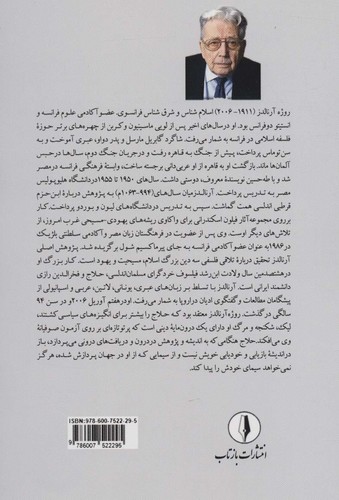 روژه آرنالدز (۱۹۱۱-۲۰۰۶) اسلام شناس و شرق شناس فرانسوی. عضو آکادمی علوم فرانسه و
انستیتو دوفرانس بود. او در سال‌های اخیر پس از لویی ماسینیون و کربن از چهره‌های برتر حوزهٔ
فلسفه اسلامی در فرانسه به شمار می‌رفت. شاگرد گابریل مارسل و پدر داود، عبری آموخت و به
سن‌توماس پرداخت، پیش از جنگ به قاهره رفت و در جریان جنگ دوم، سال‌ها در حبس
آلمان‌ها ماند. بازگشت او به قاهره از او عربی‌دانی برجسته ساخت، وابستهٔ فرهنگی فرانسه در مصر
شد و با طه‌حسین نویسندهٔ معروف، دوستی داشت. سال‌های ۱۹۵۰ تا ۱۹۵۵ در دانشگاه هلیوپلیس
مصر به تدریس پرداخت. آرنالدز میان سال‌های (۹۹۴-۱۰۶۳م) به پژوهش دربارهٔ ابن‌حزم
قرطبی اندلسی همت گماشت. سپس به تدریس در دانشگاه‌های لیون و بوردو پرداخت.
برروی مجموعه‌آثار فیلون اسکندرانی برای واکاوی ریشه‌های یهودی-مسیحی غرب امروز، از
تلاش‌های دیگر اوست. وی پس از عضویت در فرهنگستان زبان مصر و آکادمی سلطنتی بلژیک
در ۱۹۸۶ به عنوان عضو آکادمی فرانسه به جای پیرماکسیم شول برگزیده شد. پژوهش اصلی
آرنالدز تحقیق دربارهٔ تلاقی فلسفی سه دین بزرگ اسلام، مسیحیت و یهود است. کار بزرگ او
در هشتصدمین سال ولادت ابن‌رشد فیلسوف خردگرای مسلمان‌اندلسی، حلاج و فخرالدین رازی
دانشمند ایرانی است. آرنالدز با تسلط بر زبان‌های عبری، یونانی، لاتین، عربی و اسپانیولی از
پیشگامان مطالعات و گفتگوی ادیان در اروپا به شمار می‌رفت. او در هفتم آوریل ۲۰۰۶ و در سن ۹۴
سالگی درگذشت. روژه آرنالدز معتقد بود که حلاج را بیشتر برای انگیزه‌های سیاسی کشتند،
لیک، شکنجه و مرگ او دارای یک درون‌مایهٔ دینی است که پرتو تازه‌ای بر روی آزمون صوفیانهٔ
وی می‌افکند. حلاج هنگامی که به اندیشه و پژوهش در درون و دریافت‌های درونی می‌پردازد، باز
در اندیشهٔ بازیابی و خودیابی خویش نیست و از سیمایی که از او در جهان پردازش شده، هرگز
نمی‌خواهد سیمای خودش را پیدا کند.
ISBN: 978-600-7522-29-5
9 786007 522295
انتشارات بازتاب